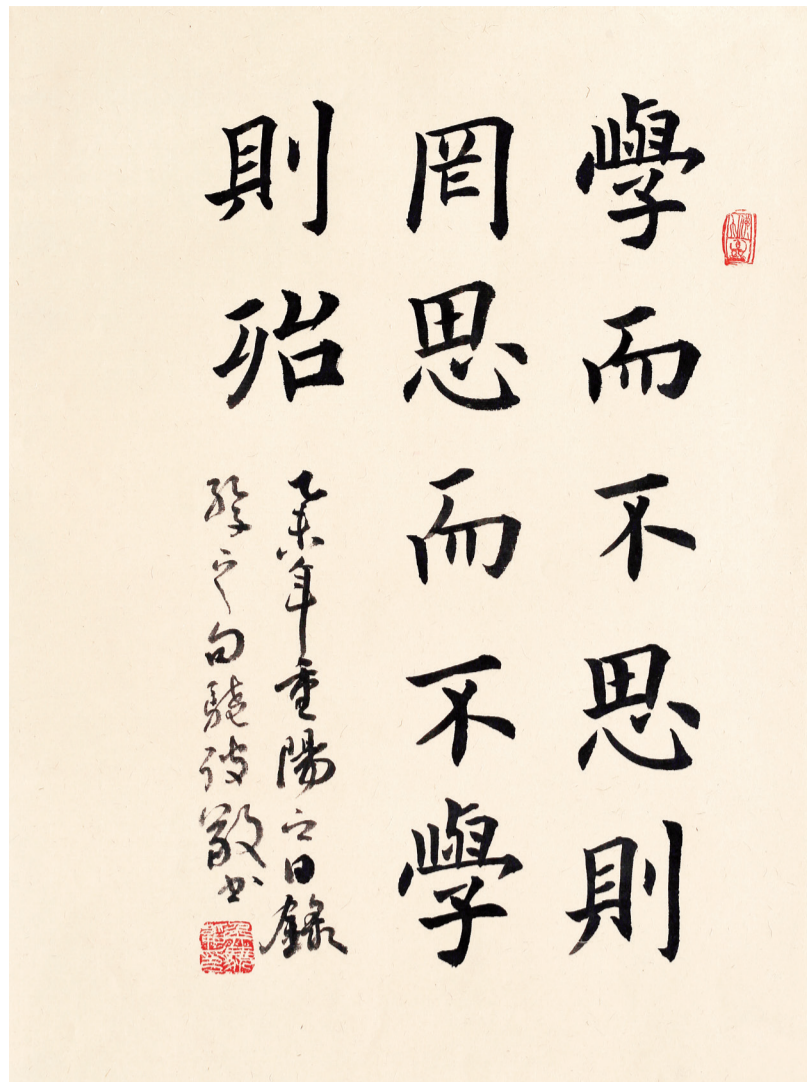 學而不思則
罔思而不學
則殆
乙未年重陽之日錄
之句敬書